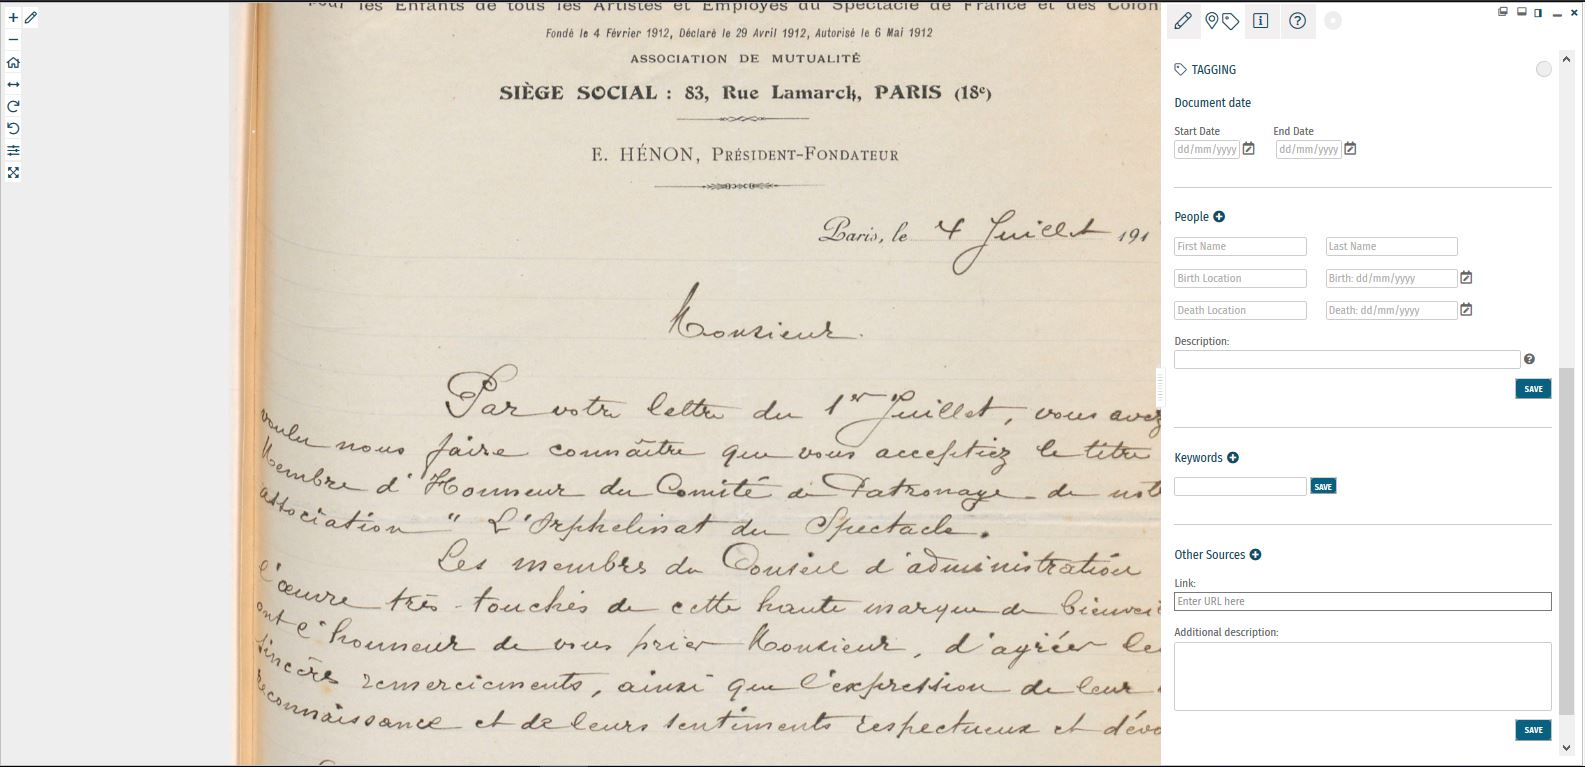 Pour les Enfants de tous les Artistes et Employés du Spectacle de France et des Colon
Fondé le 4 Février 1912, Déclaré le 29 Avril 1912, Autorisé le 6 Mai 1912
ASSOCIATION DE MUTUALITÉ
SIÈGE SOCIAL : 83, Rue Lamarck, PARIS (18e)
E. HÉNON, PRÉSIDENT-FONDATEUR
Paris, le 4 Juillet 191
Monsieur.
Par votre lettre du 1er Juillet, vous avez
voulu nous faire connaître que vous acceptiez le titre
Membre d'Honneur du Comité de Patronage de notr
association " L'Orphelinat du Spectacle.
Les membres du Conseil d'administration
l'œuvre très touchés de cette haute marque de bienvei
ont l'honneur de vous prier Monsieur, d'agréer le
sincères remerciements, ainsi que l'expression de leur
reconnaissance et de leurs sentiments respectueux et dévo
TAGGING
Document date
Start Date End Date
dd/mm/yyyy dd/mm/yyyy
People
First Name Last Name
Birth Location Birth: dd/mm/yyyy
Death Location Death: dd/mm/yyyy
Description:
SAVE
Keywords
SAVE
Other Sources
Link:
Enter URL here
Additional description:
SAVE